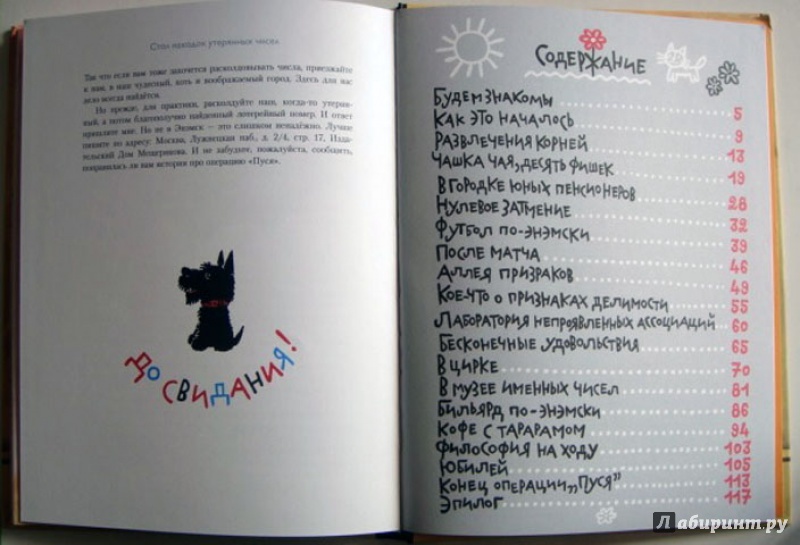 Стол находок утерянных чисел
Так что если вам тоже захочется расколдовывать числа, приезжайте
к нам, в наш чудесный, хоть и воображаемый город. Здесь для вас
дело всегда найдётся.
Но прежде, для практики, расколдуйте наш, когда-то утерян-
ный, а потом благополучно найденный лотерейный номер. И ответ
пришлите мне. Но не в Энэмск — это слишком ненадёжно. Лучше
пишите по адресу: Москва, Лужнецкая наб., д. 2/4, стр. 17, Изда-
тельский Дом Мещерякова. И не забудьте, пожалуйста, сообщить,
понравилась ли вам история про операцию «Пуся».
До свидания!
Содержание
Будем знакомы 5
Как это началось 9
Развлечения корней 13
Чашка чая, десять фишек 19
В городке юных пенсионеров 28
Нулевое затмение 32
Футбол по-энэмски 39
После матча 46
Аллея призраков 49
Кое-что о признаках делимости 55
Лаборатория непроявленных ассоциаций 60
Бесконечные удовольствия 65
В цирке 70
В музее именных чисел 81
Бильярд по-энэмски 86
Кофе с тарарамом 94
Философия на ходу 103
Юбилей 105
Конец операции „Пуся” 113
Эпилог 117
Лабиринт.ру